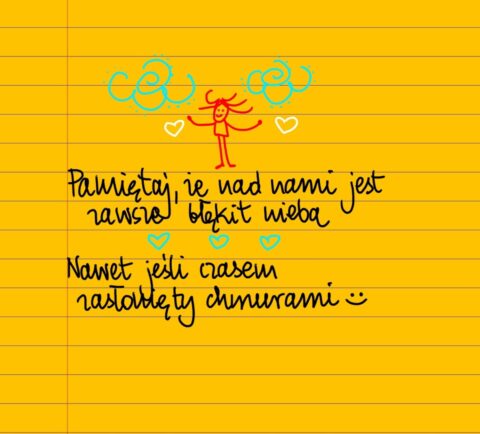 Pamiętaj, że nad nami jest
zawsze błękit nieba
Nawet jeśli czasem
zasłonięty chmurami